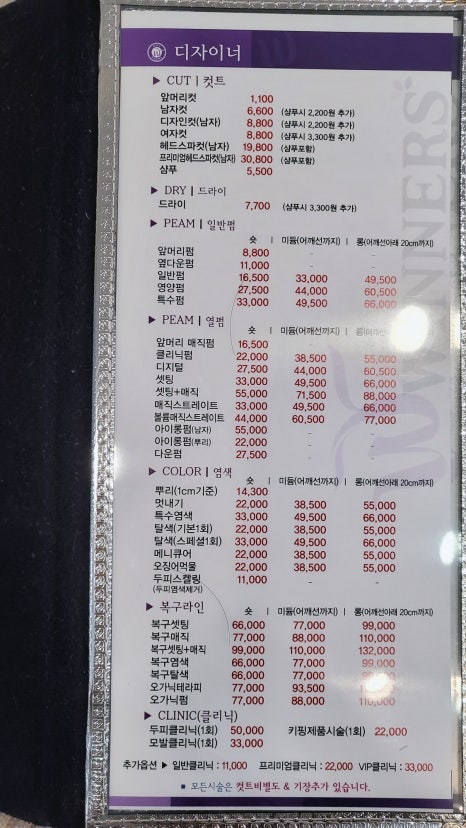 디자이너
▶ CUT | 컷트
앞머리컷 1,100
남자컷 6,600 (샴푸시 2,200원 추가)
디자인컷(남자) 8,800 (샴푸시 2,200원 추가)
여자컷 8,800 (샴푸시 3,300원 추가)
헤드스파컷(남자) 19,800 (샴푸포함)
프리미엄헤드스파컷(남자) 30,800 (샴푸포함)
샴푸 5,500
▶ DRY | 드라이
드라이 7,700 (샴푸시 3,300원 추가)
▶ PEAM | 일반펌
숏 | 미듐(어깨선까지) | 롱(어깨선아래 20cm까지)
앞머리펌 8,800 - -
옆다운펌 11,000 - -
일반펌 16,500 33,000 49,500
영양펌 27,500 44,000 60,500
특수펌 33,000 49,500 66,000
▶ PEAM | 열펌
숏 | 미듐(어깨선까지) | 롱(어깨선
앞머리 매직펌 16,500 - -
클리닉펌 22,000 38,500 55,000
디지털 27,500 44,000 60,500
셋팅 33,000 49,500 66,000
셋팅+매직 55,000 71,500 88,000
매직스트레이트 33,000 49,500 66,000
볼륨매직스트레이트 44,000 60,500 77,000
아이롱펌(남자) 55,000 - -
아이롱펌(뿌리) 22,000 - -
다운펌 27,500 - -
▶ COLOR | 염색
숏 | 미듐(어깨선까지) | 롱(어깨선아래 20cm까지)
뿌리(1cm기준) 14,300 - -
멋내기 22,000 38,500 55,000
특수염색 33,000 49,500 66,000
탈색(기본1회) 22,000 38,500 55,000
탈색(스페셜1회) 33,000 49,500 66,000
메니큐어 22,000 38,500 55,000
오징어먹물 22,000 38,500 55,000
두피스켈링 11,000 - -
(두피염색제거)
▶ 복구라인
숏 | 미듐(어깨선까지) | 롱(어깨선아래 20cm까지)
복구셋팅 66,000 77,000 99,000
복구매직 77,000 88,000 110,000
복구셋팅+매직 99,000 110,000 132,000
복구염색 66,000 77,000 99,000
복구탈색 66,000 77,000
오가닉테라피 77,000 93,500
오가닉펌 77,000 88,000 110,000
▶ CLINIC(클리닉)
두피클리닉(1회) 50,000 키핑제품시술(1회) 22,000
모발클리닉(1회) 33,000
추가옵션 ▶ 일반클리닉 : 11,000 프리미엄클리닉 : 22,000 VIP클리닉 : 33,000
▪ 모든시술은 컷트비별도 & 기장추가 있습니다.
WINNERS